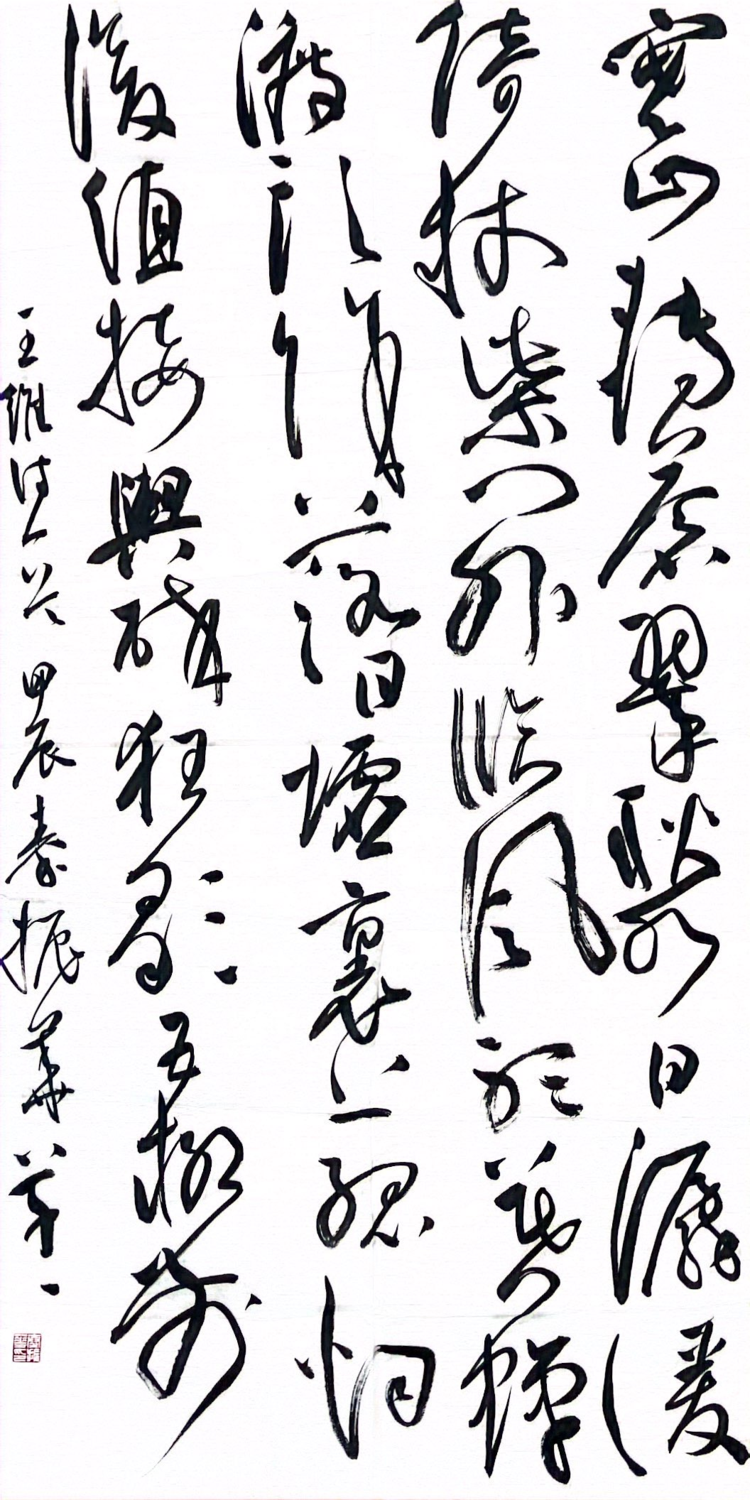 寒山轉蒼翠秋水日潺湲
倚杖柴門外臨風聽暮蟬
渡頭餘落日墟裏上孤烟
復值接輿醉狂歌五柳前
王維詩一首 甲辰春振華草